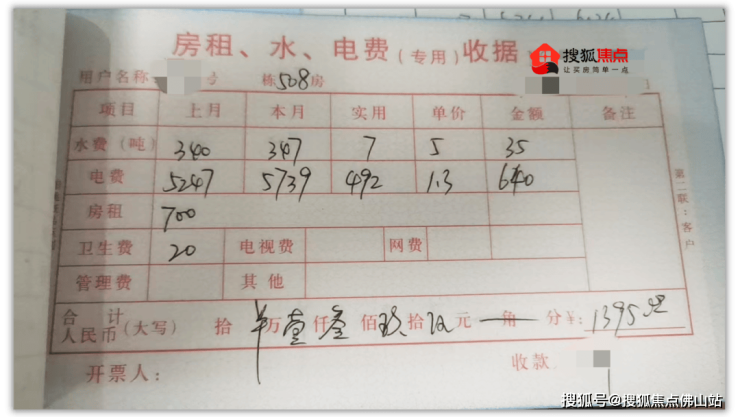 房租、水、电费（专用）收据
搜狐焦点
让买房简单一点
用户名称 号 栋508房
项目 上月 本月 实用 单价 金额 备注
水费（吨） 340 347 7 5 35
电费 5247 5739 492 1.3 640
房租 700
卫生费 20 电视费 网费
管理费 其他
合计人民币（大写） 拾 万壹仟叁佰玖拾伍元 角 分¥：1395
开票人： 收款
第二联：客户
搜狐号@搜狐焦点佛山站